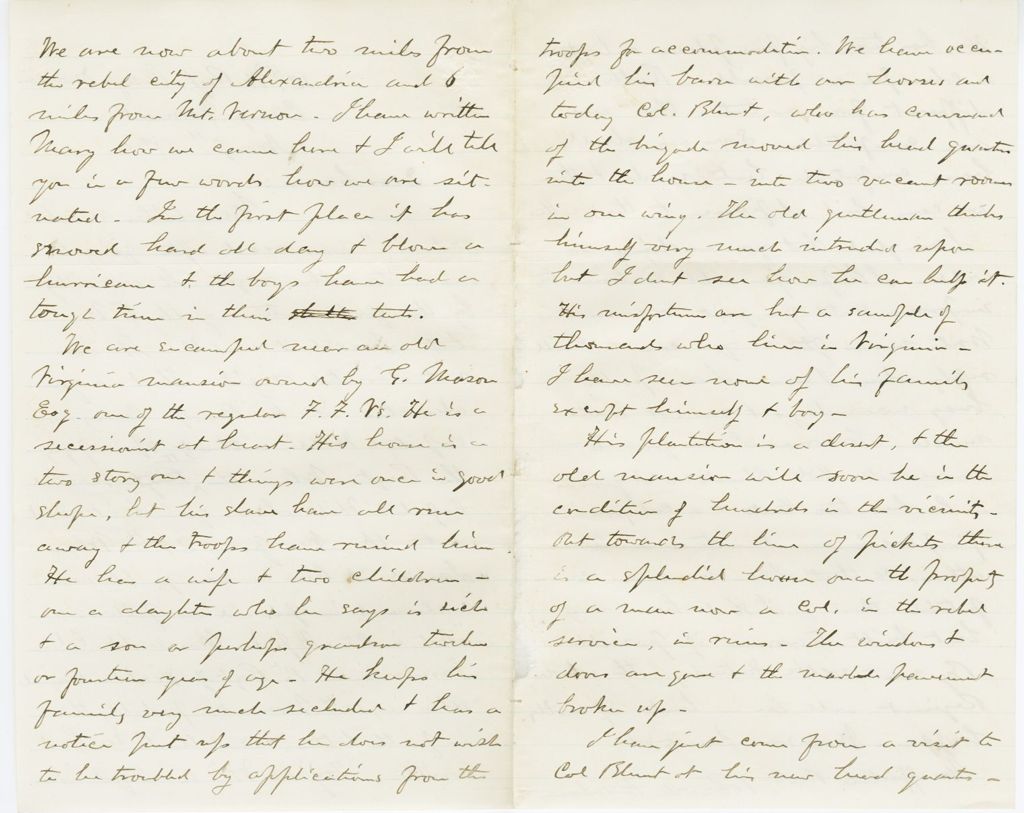 We are now about two miles from
the rebel city of Alexandria and 6
miles from Mt. Vernon. I have written
Mary how we came here & I will tell
you in a few words how we are sit-
uated. In the first place it has
snowed hard all day & blown a
hurricane & the boys have had a
tough time in their tents.
We are encamped near an old
Virginia mansion owned by G. Mason
Esq. one of the regular F. F. Vs. He is a
secessionist at heart. His house is a
two story one & things were once in good
shape, but his slaves have all run
away & the troops have ruined him.
He has a wife & two children -
one a daughter who he says is sick
& a son or perhaps grandson twelve
or fourteen years of age - He keeps his
family very much secluded & has a
notice put up that he does not wish
to be troubled by applications from the
troops for accommodation. We have occu-
pied his barn with our horses and
today Col. Blunt, who has command
of the brigade moved his head quarters
into the house - into two vacant rooms
in one wing. The old gentleman thinks
himself very much intruded upon
but I dont see how he can help it.
His misfortunes are but a sample of
thousands who live in Virginia -
I have seen none of his family
except himself & boy -
His plantation is a desert, & the
old mansion will soon be in the
condition of hundreds in the vicinity -
Out towards the line of pickets there
is a splendid house once the property
of a man now a Col. in the rebel
service, in ruins - The windows &
doors are gone & the marble pavement
broken up -
I have just come from a visit to
Col Blunt at his new head quarters -